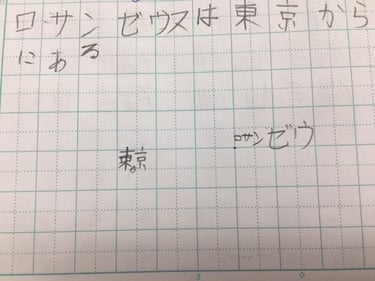 ロサンゼウスは東京から
にある
東京
ロサンゼウ